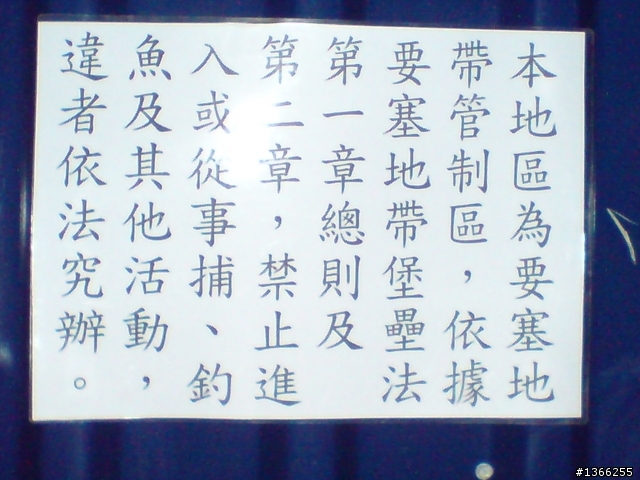 本地區為要塞地
帶管制區，依據
要塞地帶堡壘法
第一章總則及
第二章，禁止進
入或從事捕、釣
魚及其他活動，
違者依法究辦。
#1366255